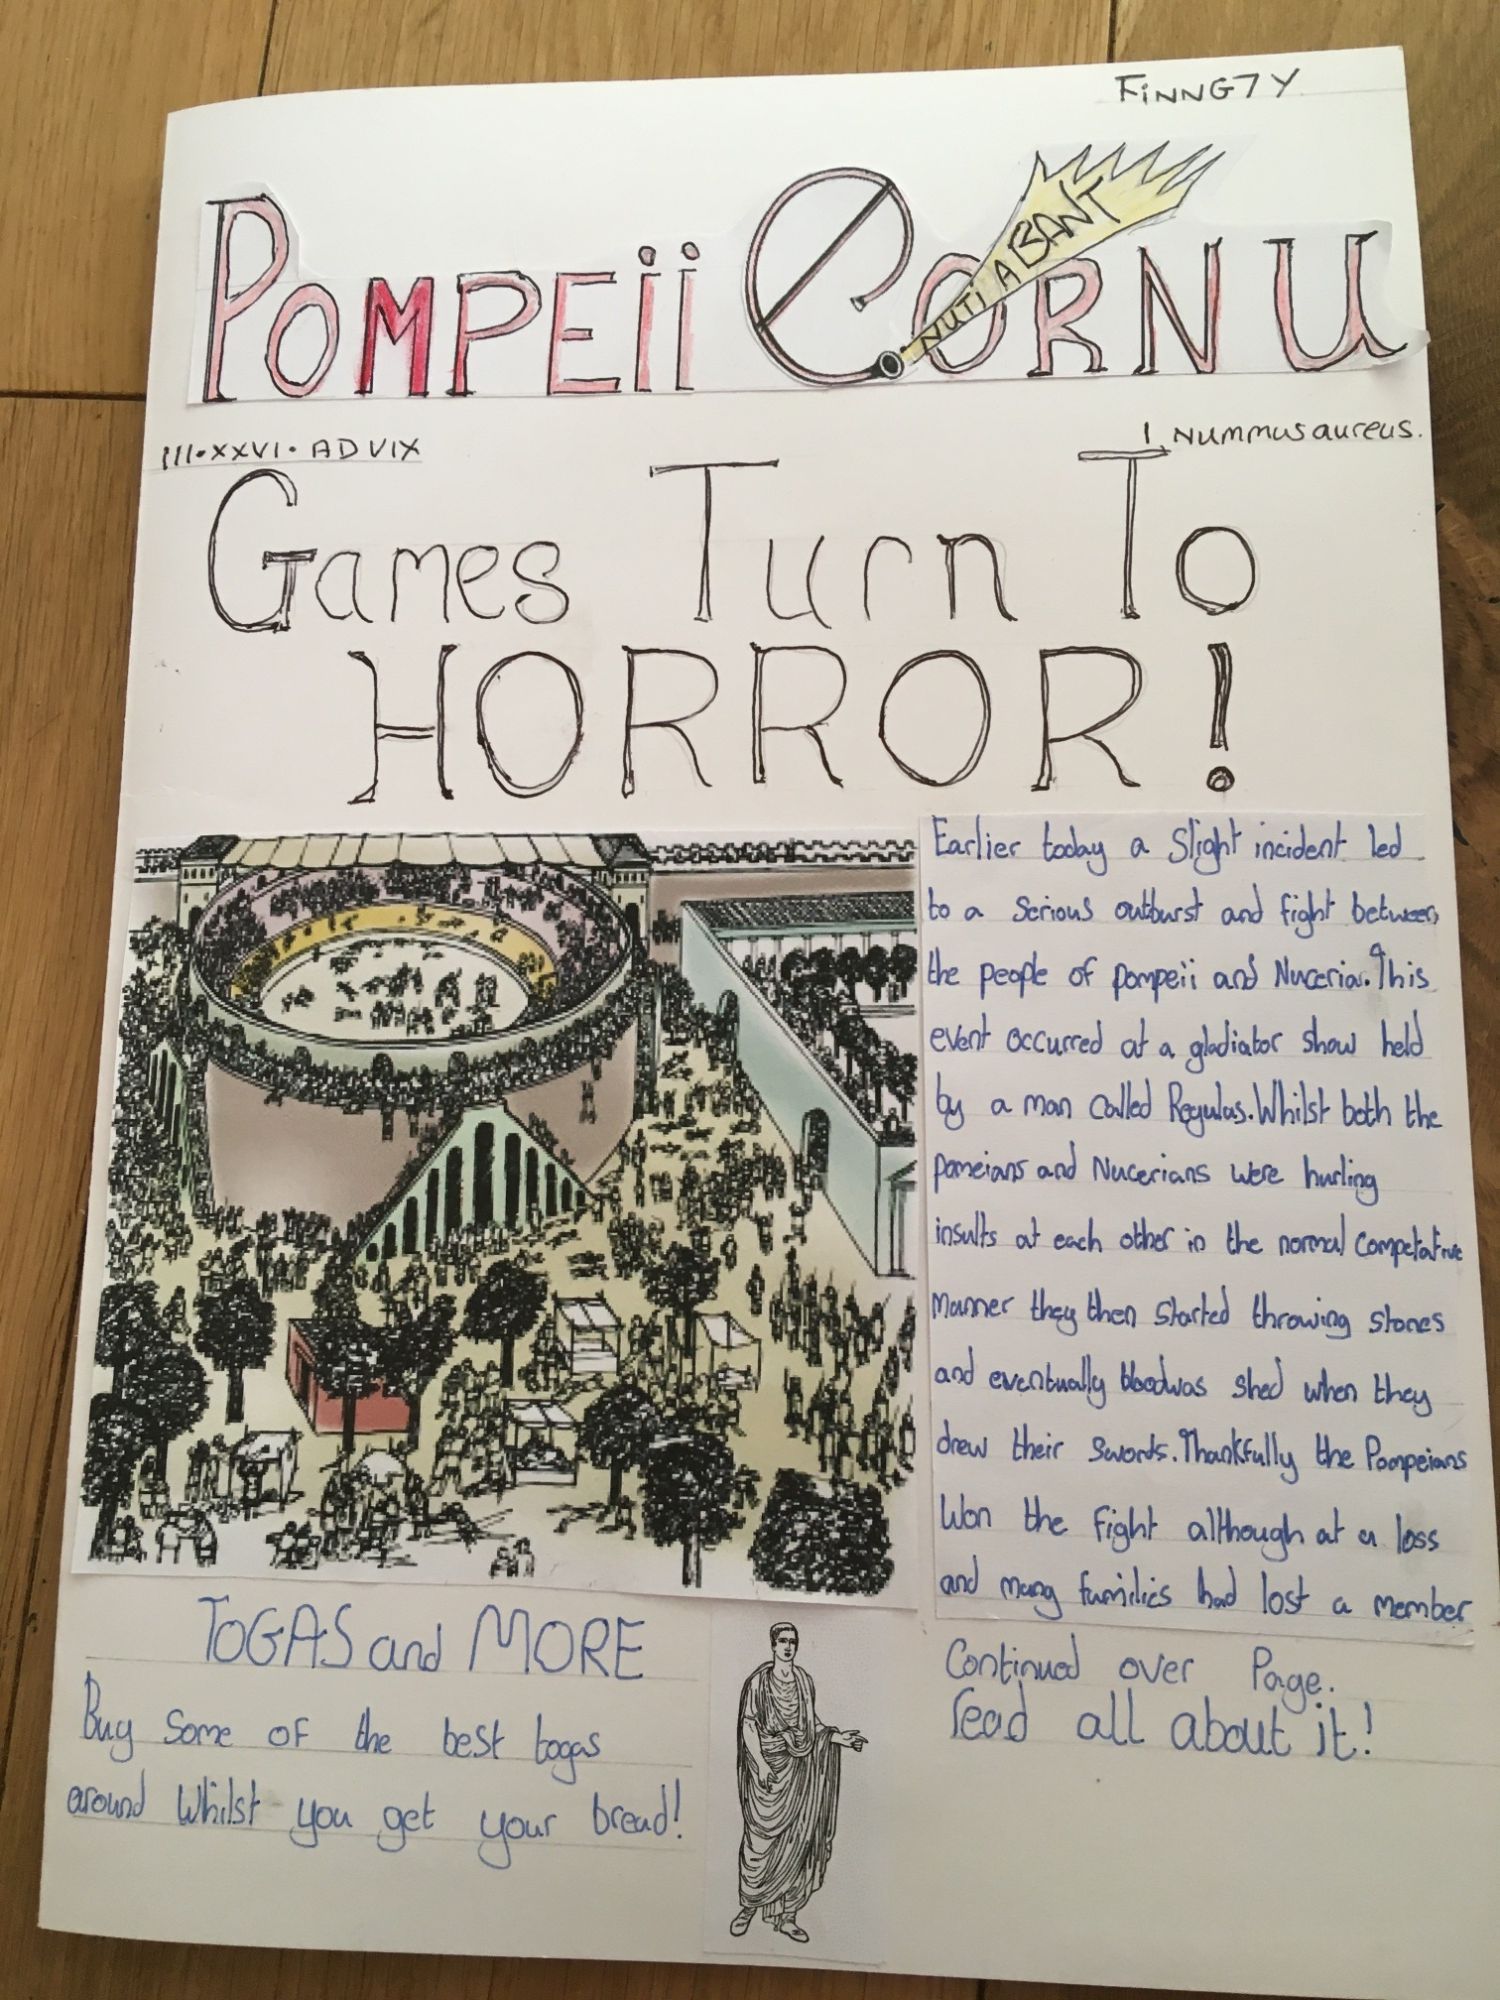 FiNNG7Y
POMPEii CORNU
NUTiABANT
III•XXVI•ADVIX
1 Nummusaureus.
Games Turn To
HORROR!
Earlier today a Slight incident led
to a serious outburst and fight between
the people of pompeii and Nuceria. This
event occurred at a gladiator show held
by a man called Regulas. Whilst both the
pomeians and Nucerians were hurling
insults at each other in the normal competative
manner they then started throwing stones
and eventually bloodwas shed when they
drew their swords. Thankfully the Pompeians
Won the fight although at a loss
and many families had lost a member
TOGAS and MORE
Buy some of the best togas
around Whilst you get your bread!
Continued over Page.
read all about it!